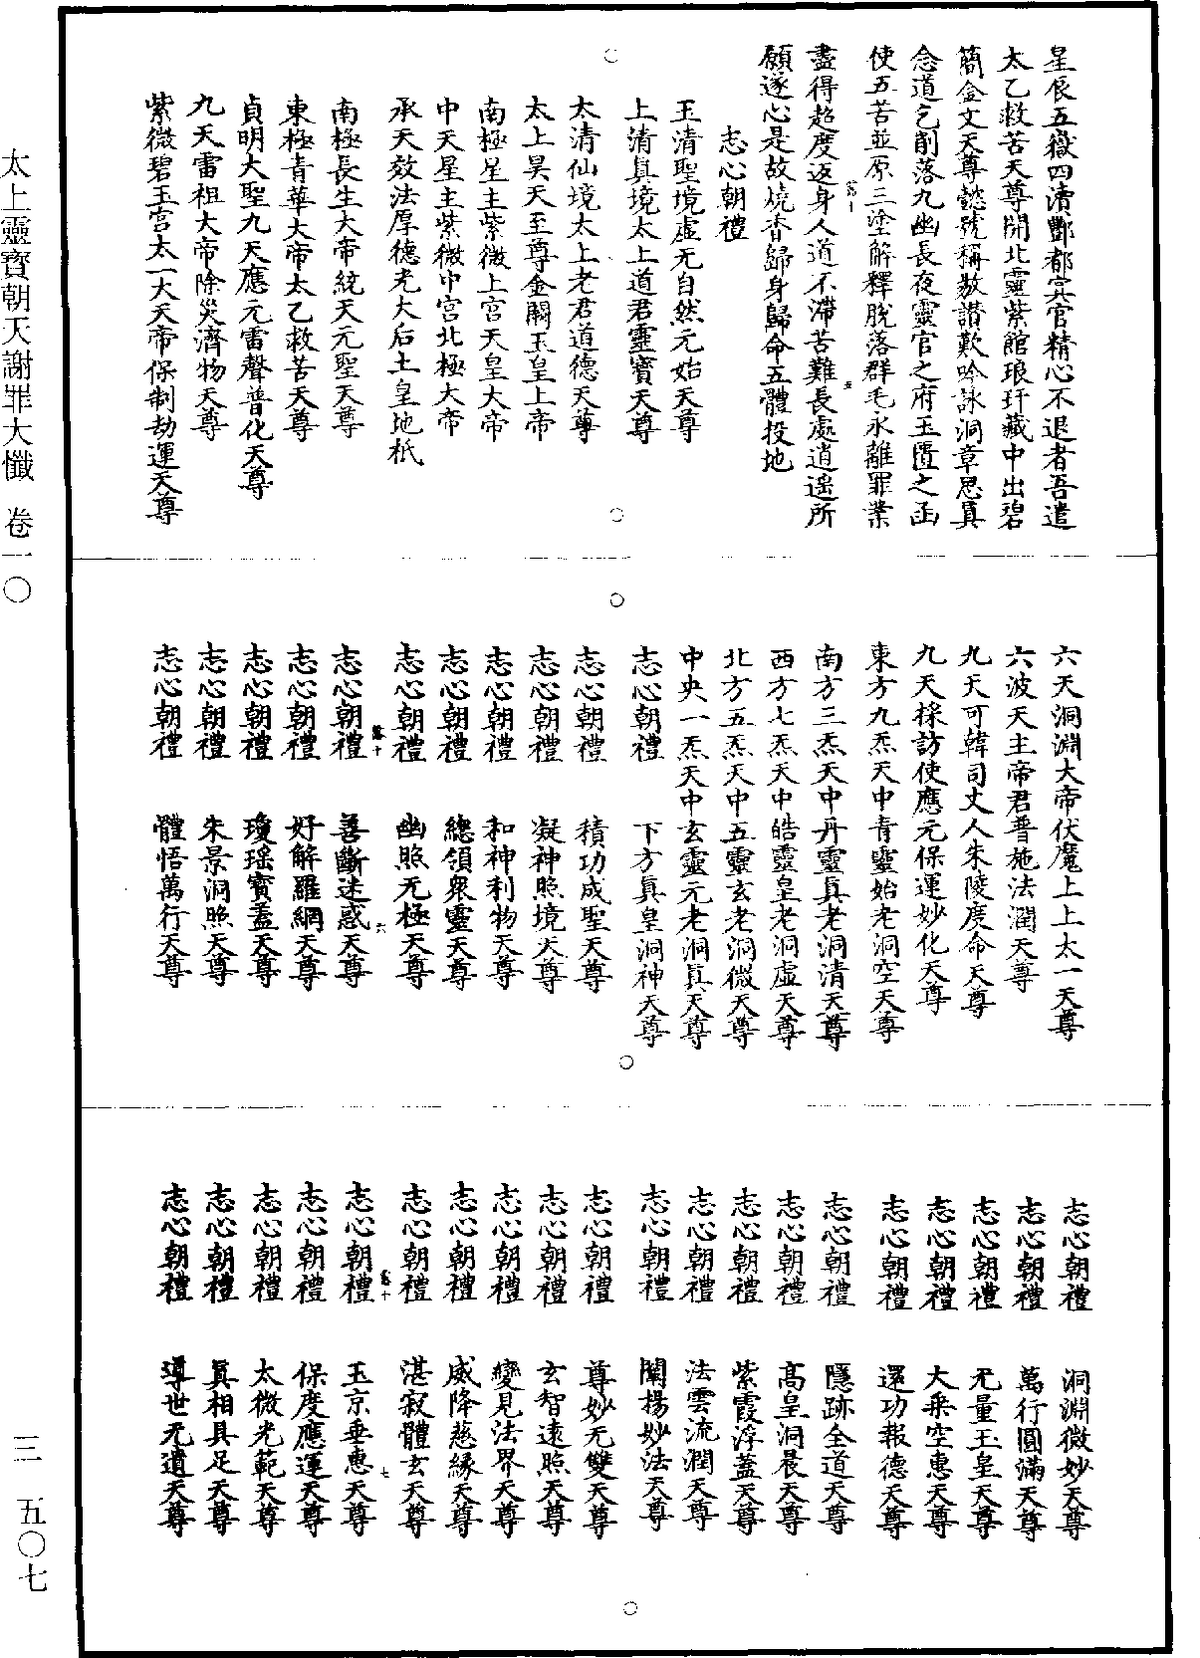 星辰五嶽四瀆酆都冥官精心不退者吾遣
太乙救苦天尊開北靈紫館琅玕藏中出碧
簡金文天尊懿號稱敭讃歎吟詠洞章思眞
念道乞削落九幽長夜靈官之府玉匱之函
使五苦並原三塗解釋脫落群毛永離罪業
盡得超度返身人道不滯苦難長處逍遥所
願遂心是故燒香歸身歸命五體投地
志心朝禮
玉清聖境虛无自然元始天尊
上清真境太上道君靈寳天尊
太清仙境太上老君道德天尊
太上昊天至尊金闕玉皇上帝
南極星主紫微上宮天皇大帝
中天星主紫微中宮北極大帝
承天效法厚德光大后土皇地祇
南極長生大帝統天元聖天尊
東極青華大帝太乙救苦天尊
貞明大聖九天應元雷聲普化天尊
九天雷祖大帝除災濟物天尊
紫微碧玉宮太一大天帝保制劫運天尊
六天洞淵大帝伏魔上上太一天尊
六波天主帝君普施法潤天尊
九天可韓司丈人朱陵度命天尊
九天採訪使應元保運妙化天尊
東方九炁天中青靈始老洞空天尊
南方三炁天中丹靈眞老洞清天尊
西方七炁天中皓靈皇老洞虛天尊
北方五炁天中五靈玄老洞微天尊
中央一炁天中玄靈元老洞眞天尊
志心朝禮 下方眞皇洞神天尊
志心朝禮 積功成聖天尊
志心朝禮 凝神照境天尊
志心朝禮 和神利物天尊
志心朝禮 總領衆靈天尊
志心朝禮 幽照无極天尊
志心朝禮 善斷迷惑天尊
志心朝禮 好解羅網天尊
志心朝禮 瓊瑶寳蓋天尊
志心朝禮 朱景洞照天尊
志心朝禮 體悟萬行天尊
志心朝禮 洞淵微妙天尊
志心朝禮 萬行圓滿天尊
志心朝禮 无量玉皇天尊
志心朝禮 大乗空惠天尊
志心朝禮 還功報德天尊
志心朝禮 隱跡全道天尊
志心朝禮 高皇洞晨天尊
志心朝禮 紫霞浮蓋天尊
志心朝禮 法雲流潤天尊
志心朝禮 闡揚妙法天尊
志心朝禮 尊妙无雙天尊
志心朝禮 玄智遠照天尊
志心朝禮 變見法界天尊
志心朝禮 威降慈緣天尊
志心朝禮 湛寂體玄天尊
志心朝禮 玉京垂惠天尊
志心朝禮 保度應運天尊
志心朝禮 太微光範天尊
志心朝禮 眞相具足天尊
志心朝禮 導世无遺天尊
太上靈寶朝天謝罪大懺 卷一〇
三 五〇七